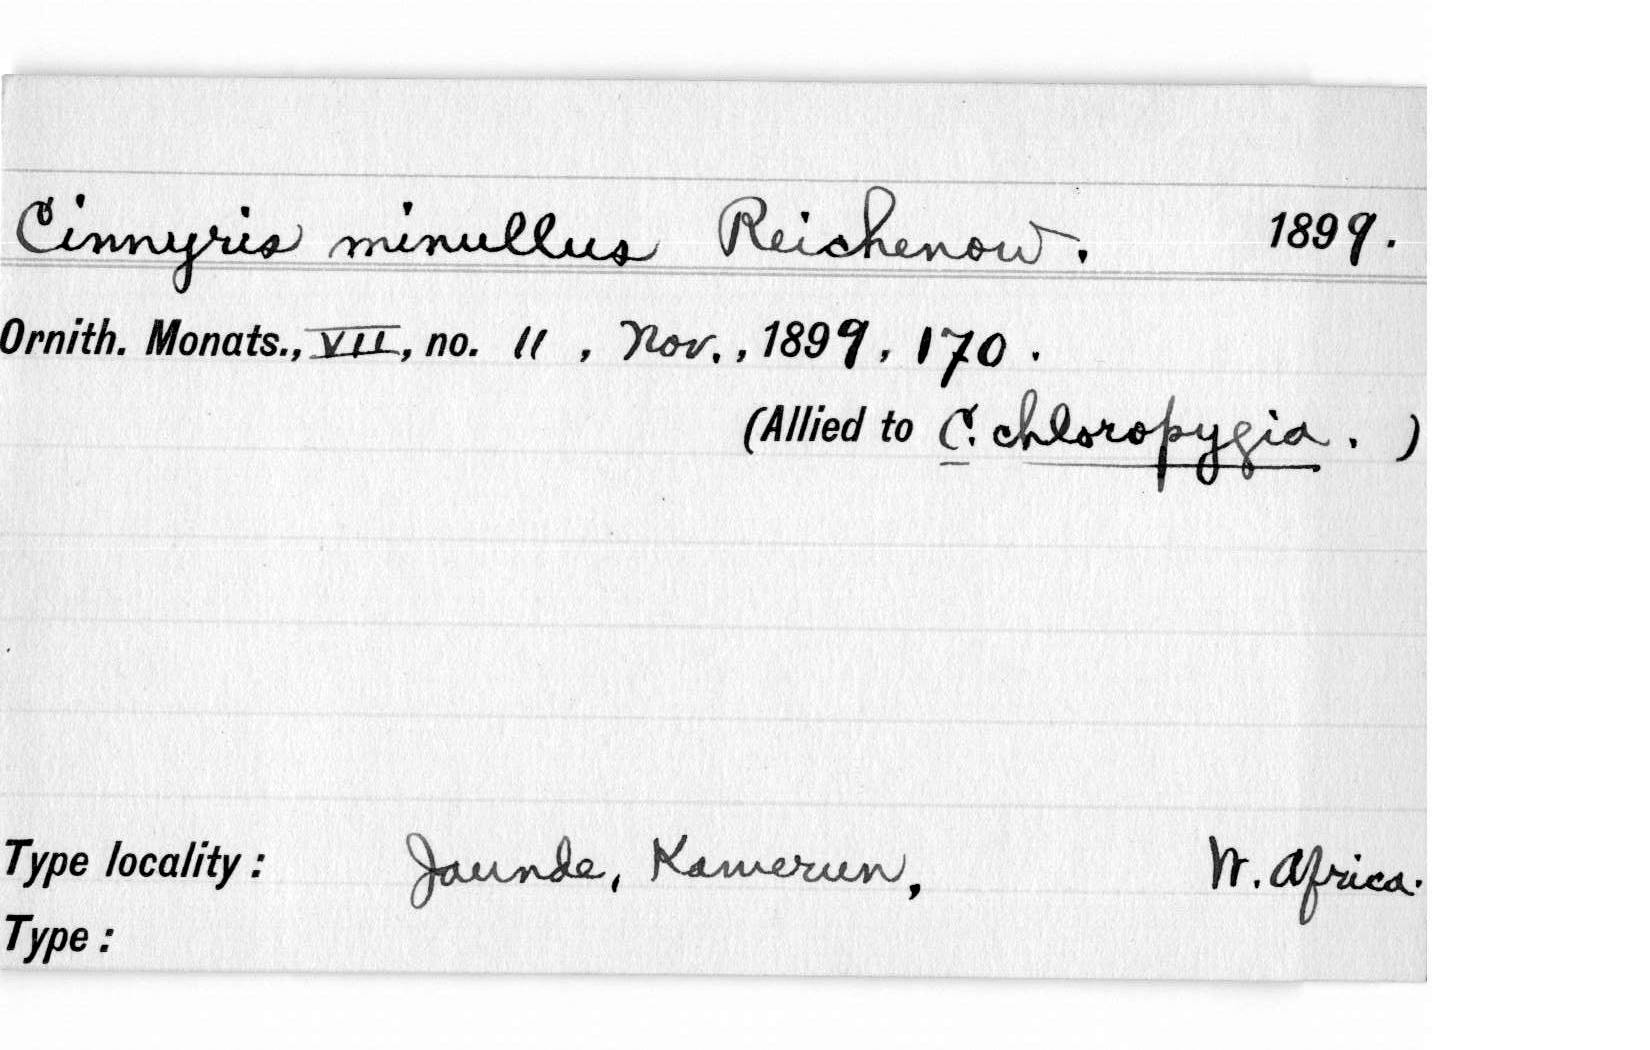 Cinnyris minullus Reichenow. 1899.
Ornith. Monats., VII, no. 11, Nov., 1899, 170.
(Allied to C. chloropygia.)
Type locality: Jaunde, Kamerun, W. Africa.
Type: